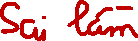 Sai lầm